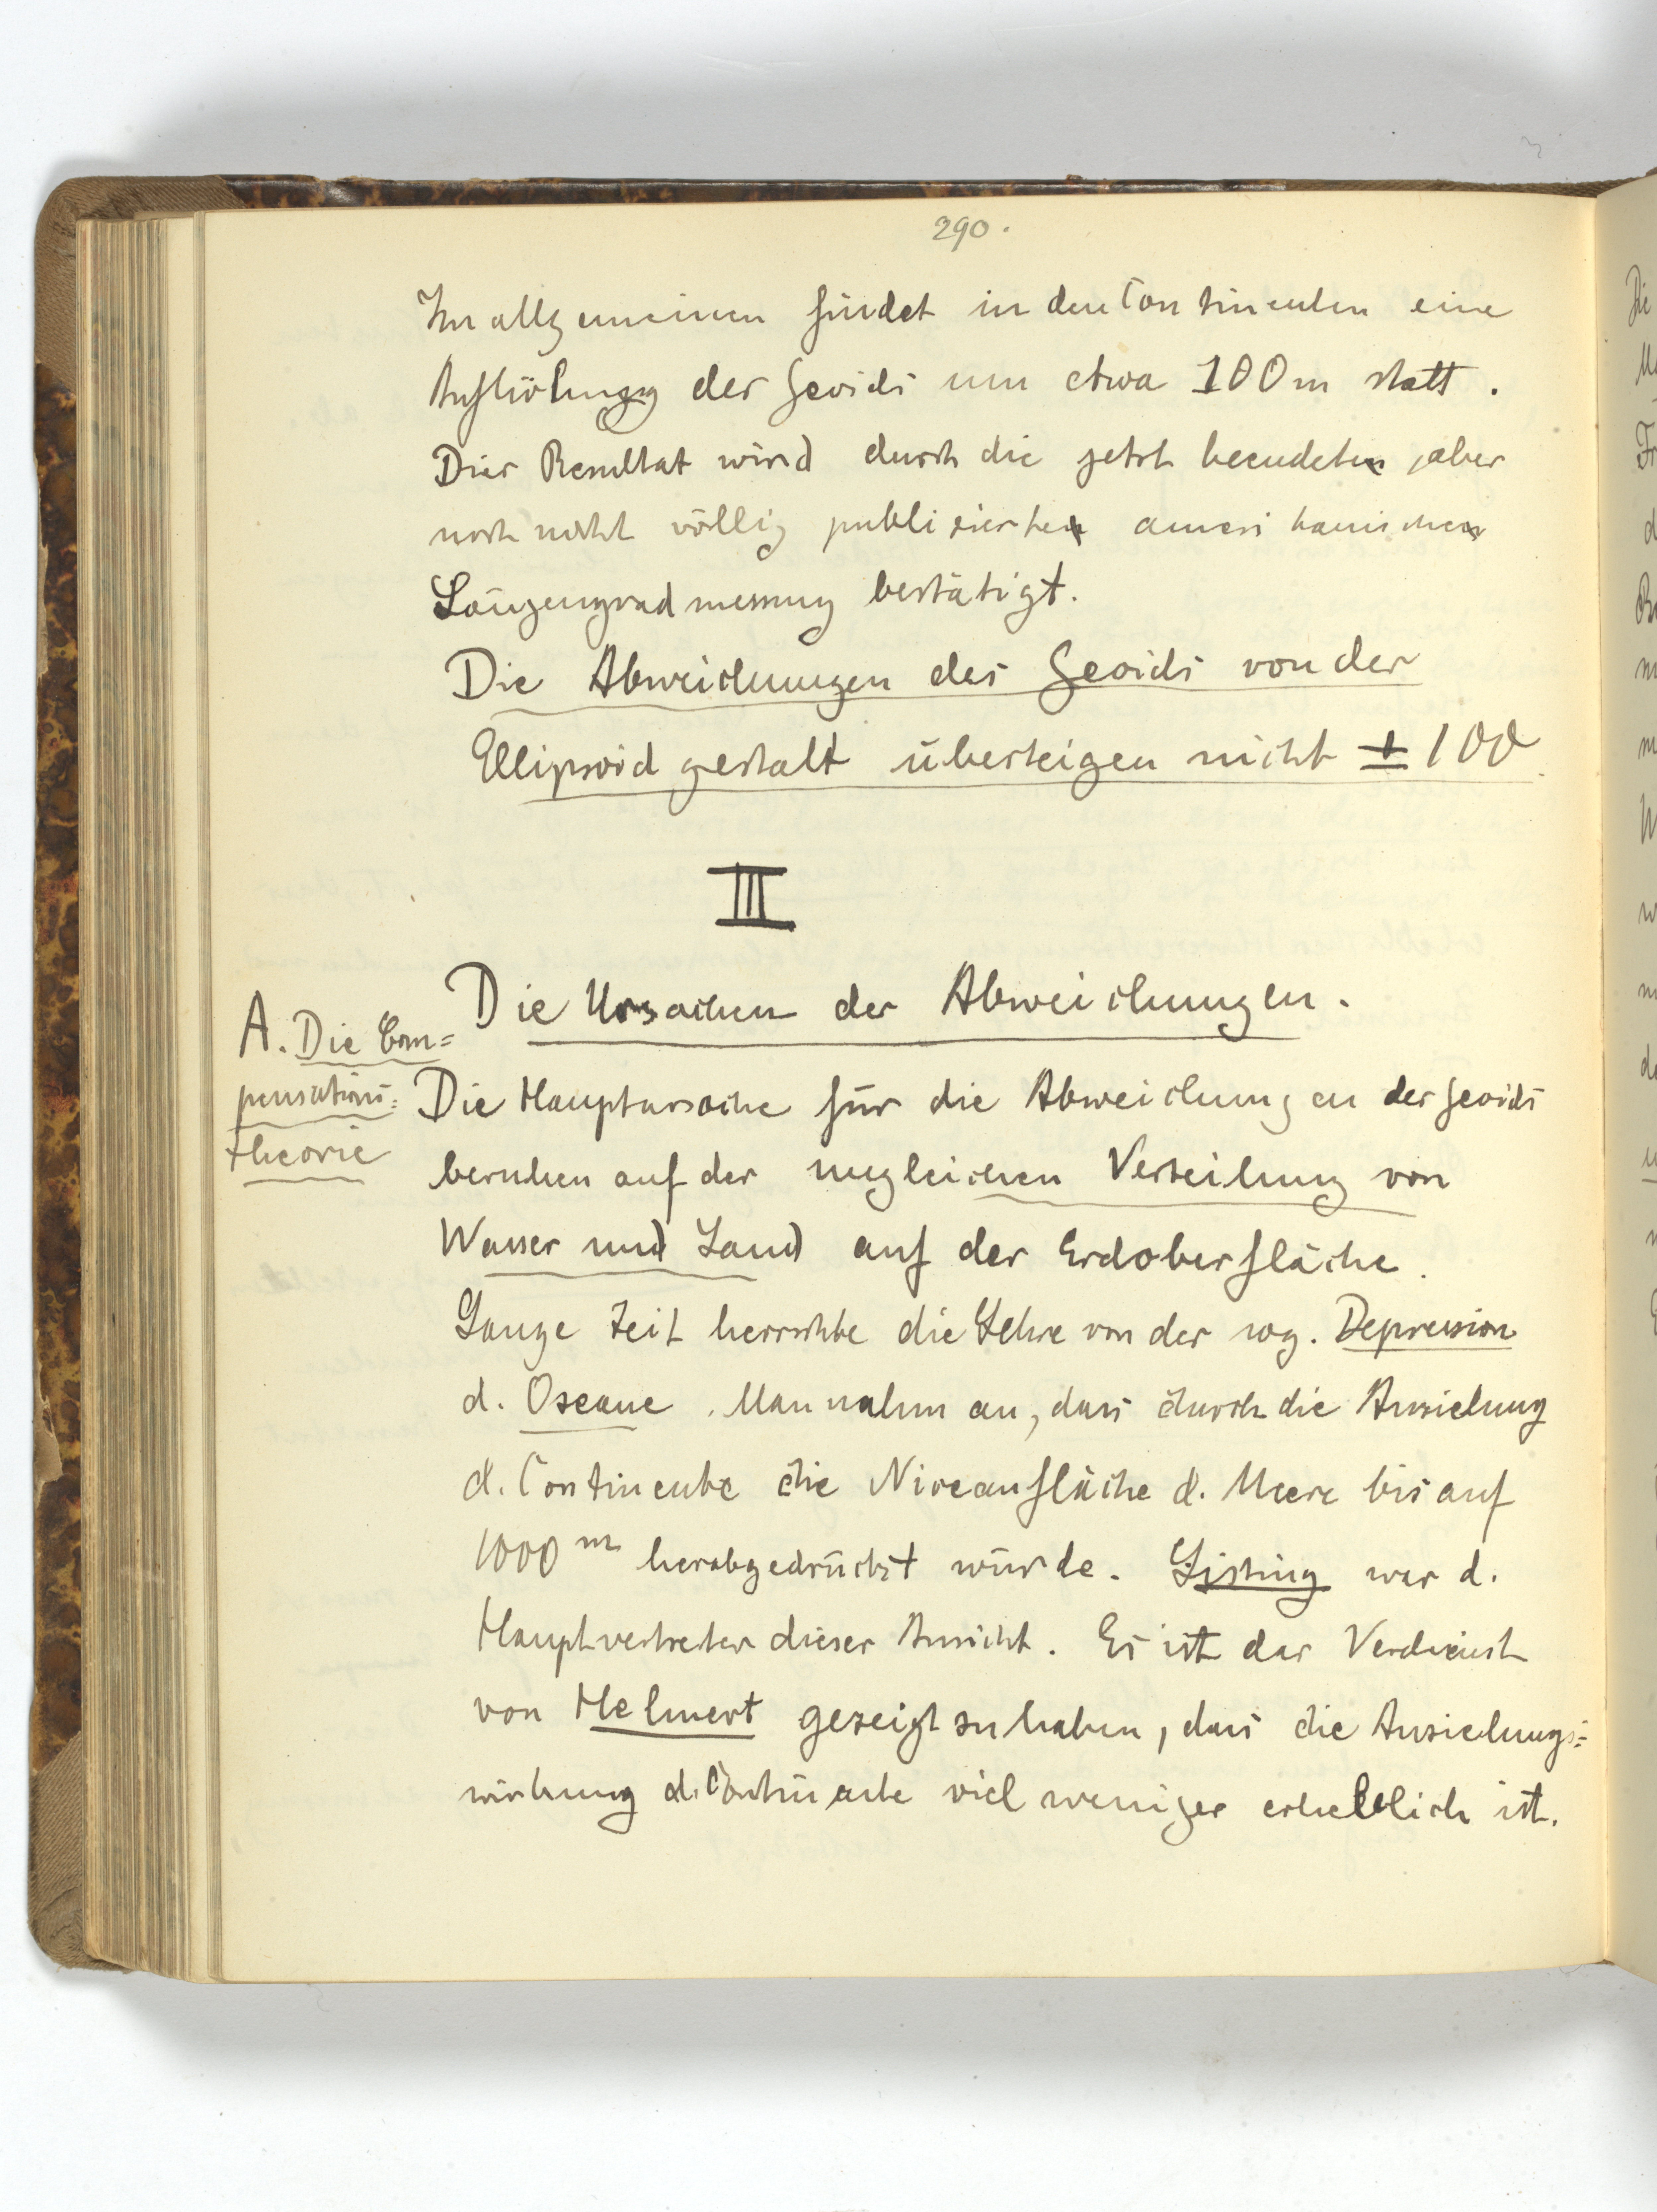 290.
Im allgemeinen findet in den Continenten eine
Aufwölbung des Geoids um etwa 100 m statt.
Dies Resultat wird durch die jetzt beendete, aber
noch nicht völlig publizierte amerikanische
Längengradmessung bestätigt.
Die Abweichungen des Geoids von der
Ellipsoidgestalt übersteigen nicht ± 100
III
Die Ursachen der Abweichungen.
A. Die Com=
pensations=
theorie
Die Hauptursache für die Abweichungen des Geoids
beruhen auf der ungleichen Verteilung von
Wasser und Land auf der Erdoberfläche.
Lange Zeit herrschte die Lehre von der sog. Depression
d. Ozeane. Man nahm an, dass durch die Anziehung
d. Continente die Niveaufläche d. Meere bis auf
1000 m herabgedrückt würde. Listing war d.
Hauptvertreter dieser Ansicht. Es ist das Verdienst
von Helmert gezeigt zu haben, dass die Anziehungs=
wirkung d. Continente viel weniger erheblich ist.